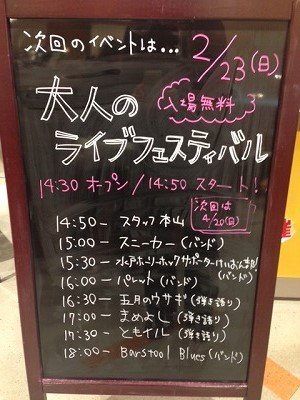 次回のイベントは...
2/23(日)
大人の
入場無料
ライブフェスティバル
14:30 オープン/14:50 スタート!
次回は
4/20(日)
14:50- スタッフ本山
15:00- スニーカー(バンド)
15:30- 水戸ホーリーホックサポーターけいおん部
(バンド)
16:00- パレット(バンド)
16:30- 五月のウサギ(弾き語り)
17:00- まめよし(弾き語り)
17:30- ともイル(弾き語り)
18:00- Barstool Blues(バンド)